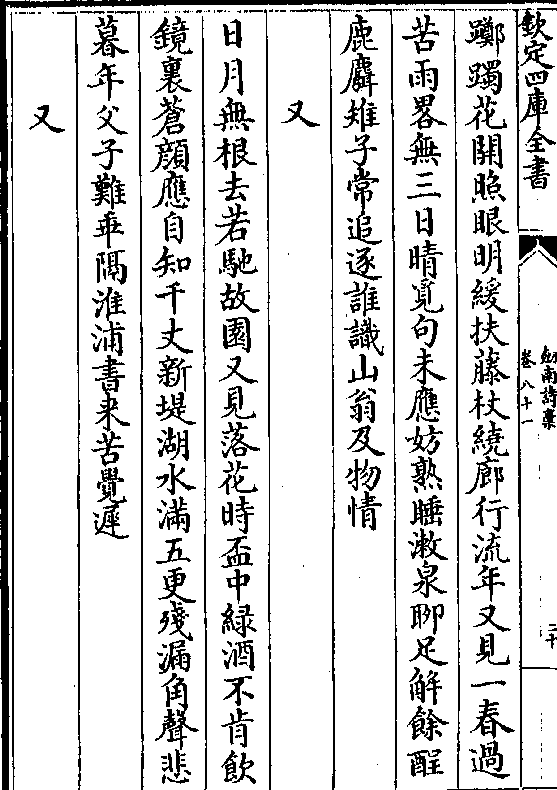 欽定四庫全書
劒南詩藁
卷八十一
二十
躑躅花開照眼明緩扶藤杖繞廊行流年又見一春過
苦雨畧無三日晴覓句未應妨熟睡漱泉聊足解餘酲
鹿麛雉子常追逐誰識山翁及物情
又
日月無根去若馳故園又見落花時盃中緑酒不肯飲
鏡裏蒼顔應自知千丈新堤湖水滿五更殘漏角聲悲
暮年父子難乖隔淮浦書来苦覺遲
又